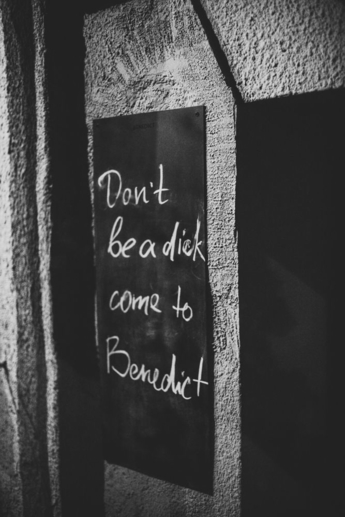 Don't
be a dick
come to
Benedict